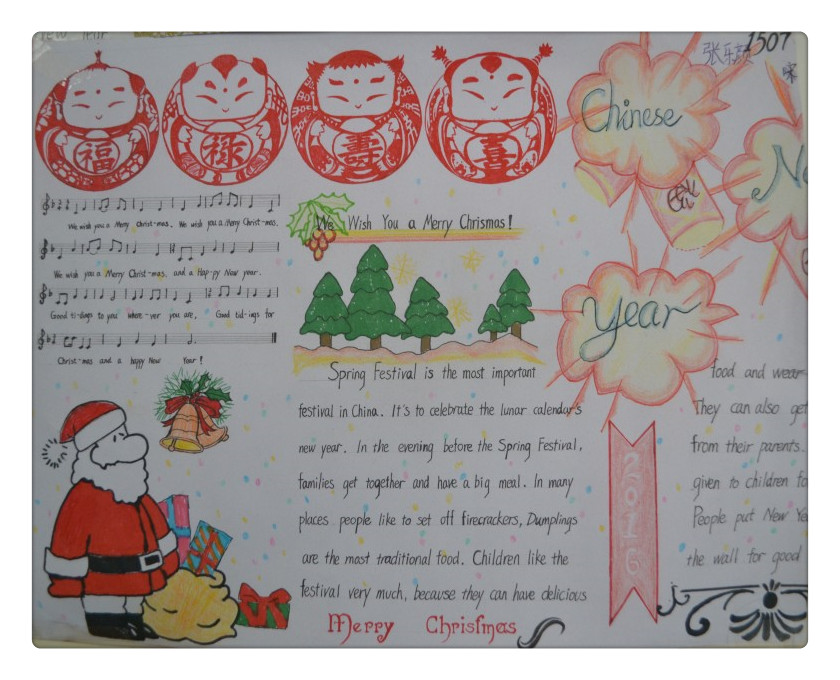 张乐颜 1507
福 禄 寿 喜
Chinese
Ne
year
We wish you a Merry Christ-mas. We wish you a Merry Christ-mas.
We wish you a Merry Christ-mas, and a Hap-py New year.
Good ti-dings to you whee-ver you are, Good tid-ings for
Christ-mas and a happy New Year!
We Wish You a Merry Chrismas!
Spring Festival is the most important
festival in China. It's to celebrate the lunar calendar's
new year. In the evening before the Spring Festival,
families get together and have a big meal. In many
places people like to set off firecrackers, Dumplings
are the most traditional food. Children like the
festival very much, because they can have delicious
Merry Chrisfmas
2016
food and wear
They can also get
from their parents.
given to children fo
People put New Ye
the wall for good